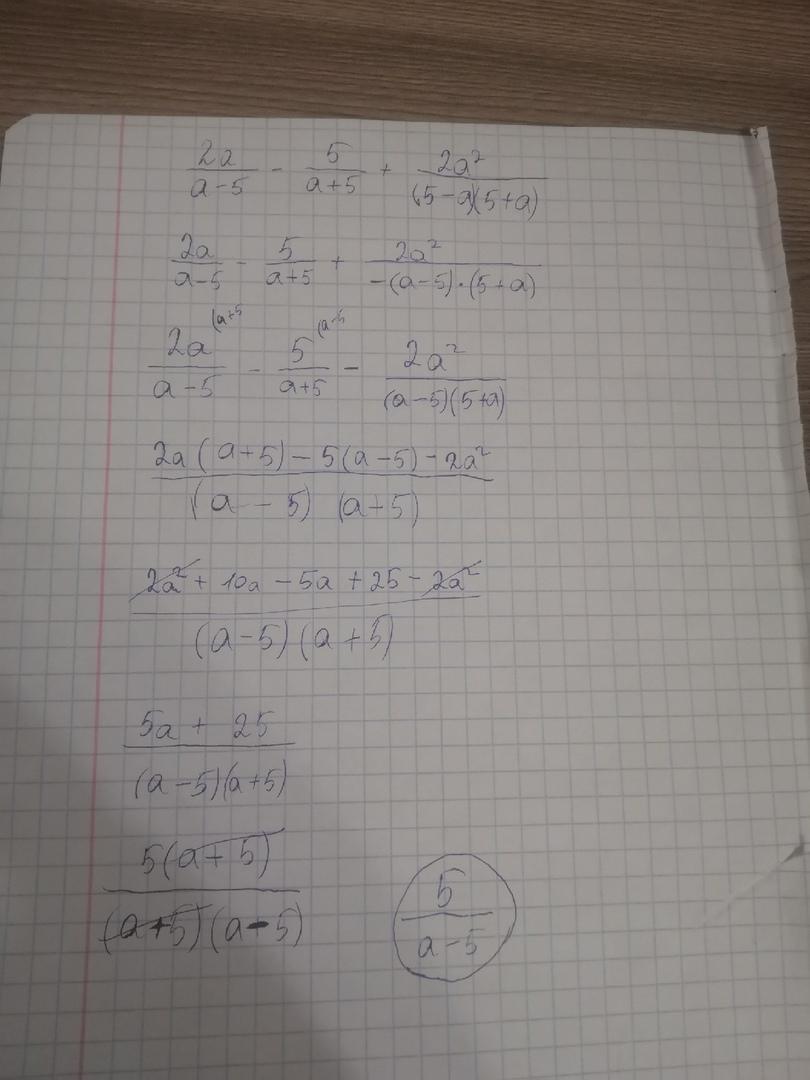 2a/(a-5) - 5/(a+5) + 2a²/((5-a)(5+a))
2a/(a-5) - 5/(a+5) + 2a²/(-(a-5)·(5+a))
2a^(a+5/(a-5) - 5^(a-5/(a+5) - 2a²/((a-5)(5+a))
(2a(a+5)-5(a-5)-2a²)/((a-5)(a+5))
(2a²+10a-5a+25-2a²)/((a-5)(a+5))
(5a+25)/((a-5)(a+5))
5(a+5)/((a+5)(a-5))
5/(a-5)